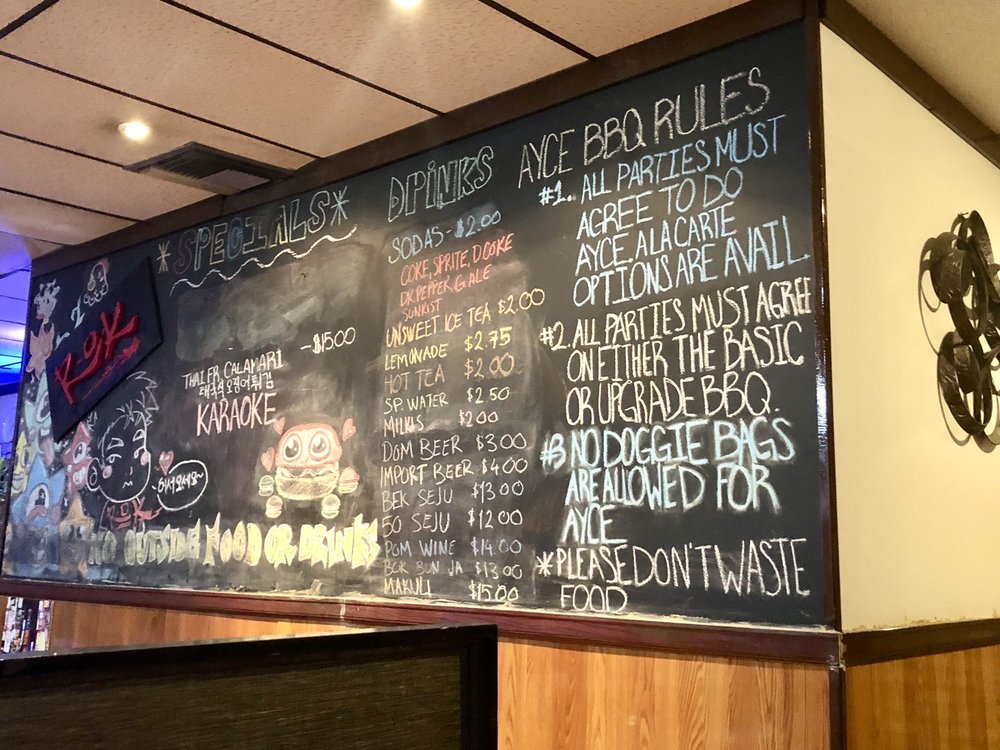 *SPECIALS*
THAI FR. CALAMARI -$15.00
태국식 오징어 튀김
KARAOKE
어서오세요~
NO OUTSIDE FOOD OR DRINKS
DRINKS
SODAS - $2.00
COKE, SPRITE, D.COKE
DR. PEPPER, G.ALE
SUNKIST
UNSWEET ICE TEA $2.00
LEMONADE $2.75
HOT TEA $2.00
SP. WATER $2.50
MILKIS $2.00
DOM BEER $3.00
IMPORT BEER $4.00
BEK SEJU $13.00
50 SEJU $12.00
POM WINE $14.00
BOK BUN JA $13.00
MAKULI $15.00
AYCE BBQ RULES
#1. ALL PARTIES MUST
AGREE TO DO
AYCE. A LA CARTE
OPTIONS ARE AVAIL.
#2. ALL PARTIES MUST AGREE
ON EITHER THE BASIC
OR UPGRADE BBQ.
#3 NO DOGGIE BAGS
ARE ALLOWED FOR
AYCE
*PLEASE DON'T WASTE
FOOD